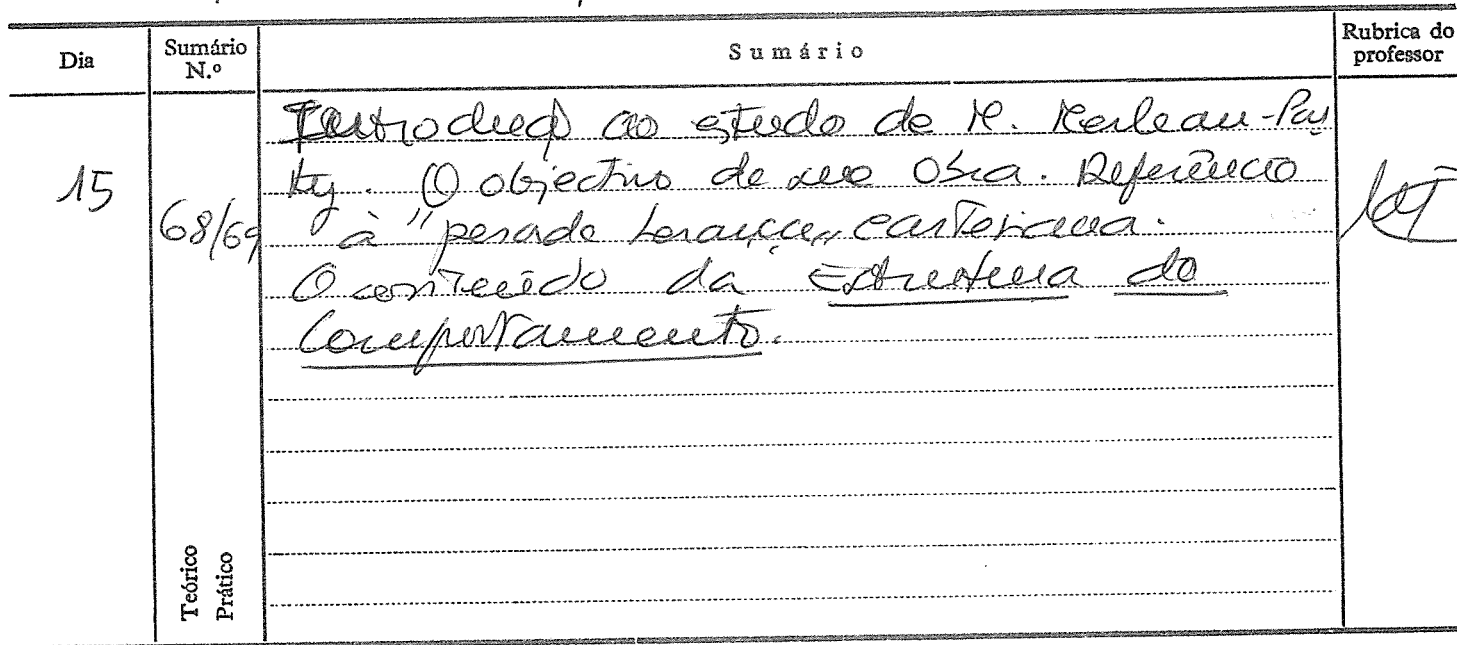 Dia
Sumário N.º
Sumário
Rubrica do professor
15
68/69
Introdução ao estudo de M. Merleau-Pon
ty. O objectivo de sua obra. Referência
à "pesada herança" cartesiana.
O conteúdo da Estrutura do
Comportamento.
Teórico
Prático